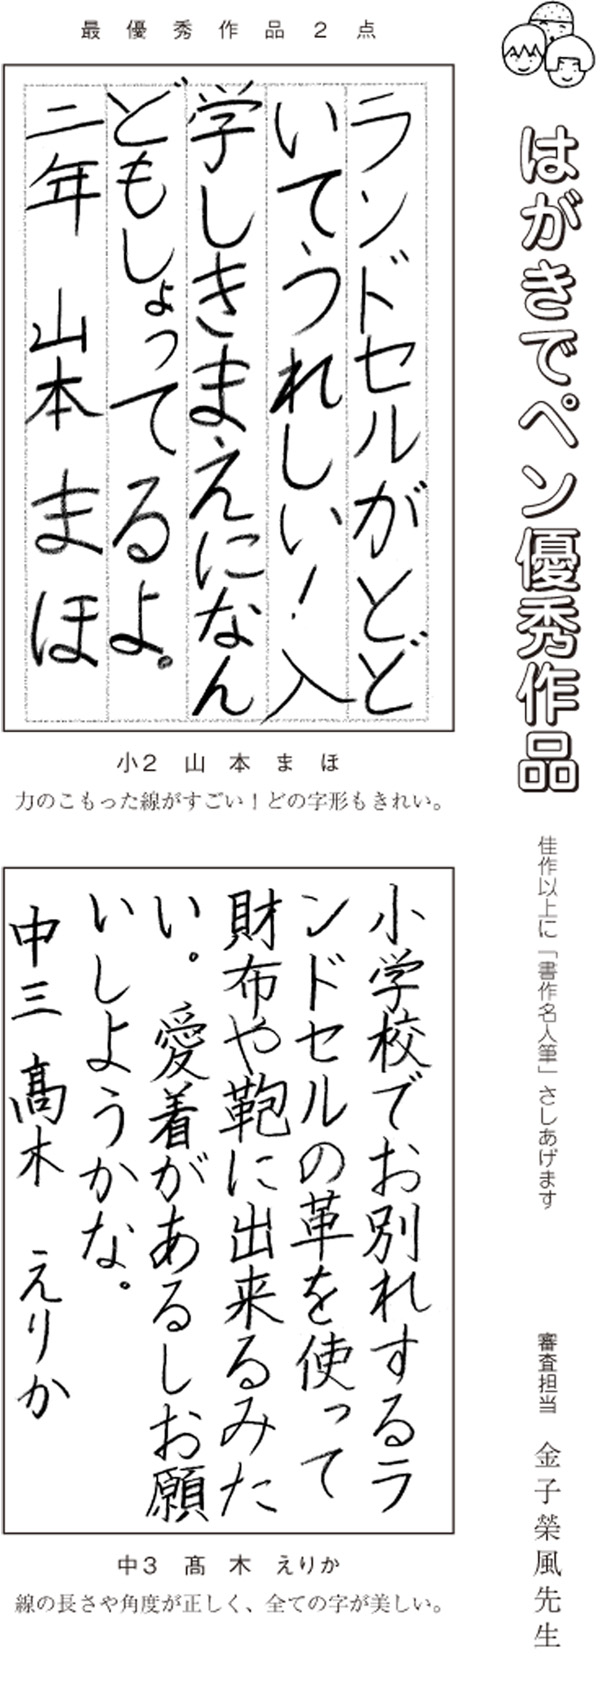 はがきでペン優秀作品
佳作以上に「書作名人筆」さしあげます
審査担当 金子榮風先生
最優秀作品2点
ランドセルがとど
いてうれしい！入
学しきまえになん
どもしょってるよ。
二年 山本まほ
小2 山本まほ
力のこもった線がすごい！どの字形もきれい。
小学校でお別れするラ
ンドセルの革を使って
財布や鞄に出来るみた
い。愛着があるしお願
いしようかな。
中三 髙木 えりか
中3 髙木 えりか
線の長さや角度が正しく、全ての字が美しい。